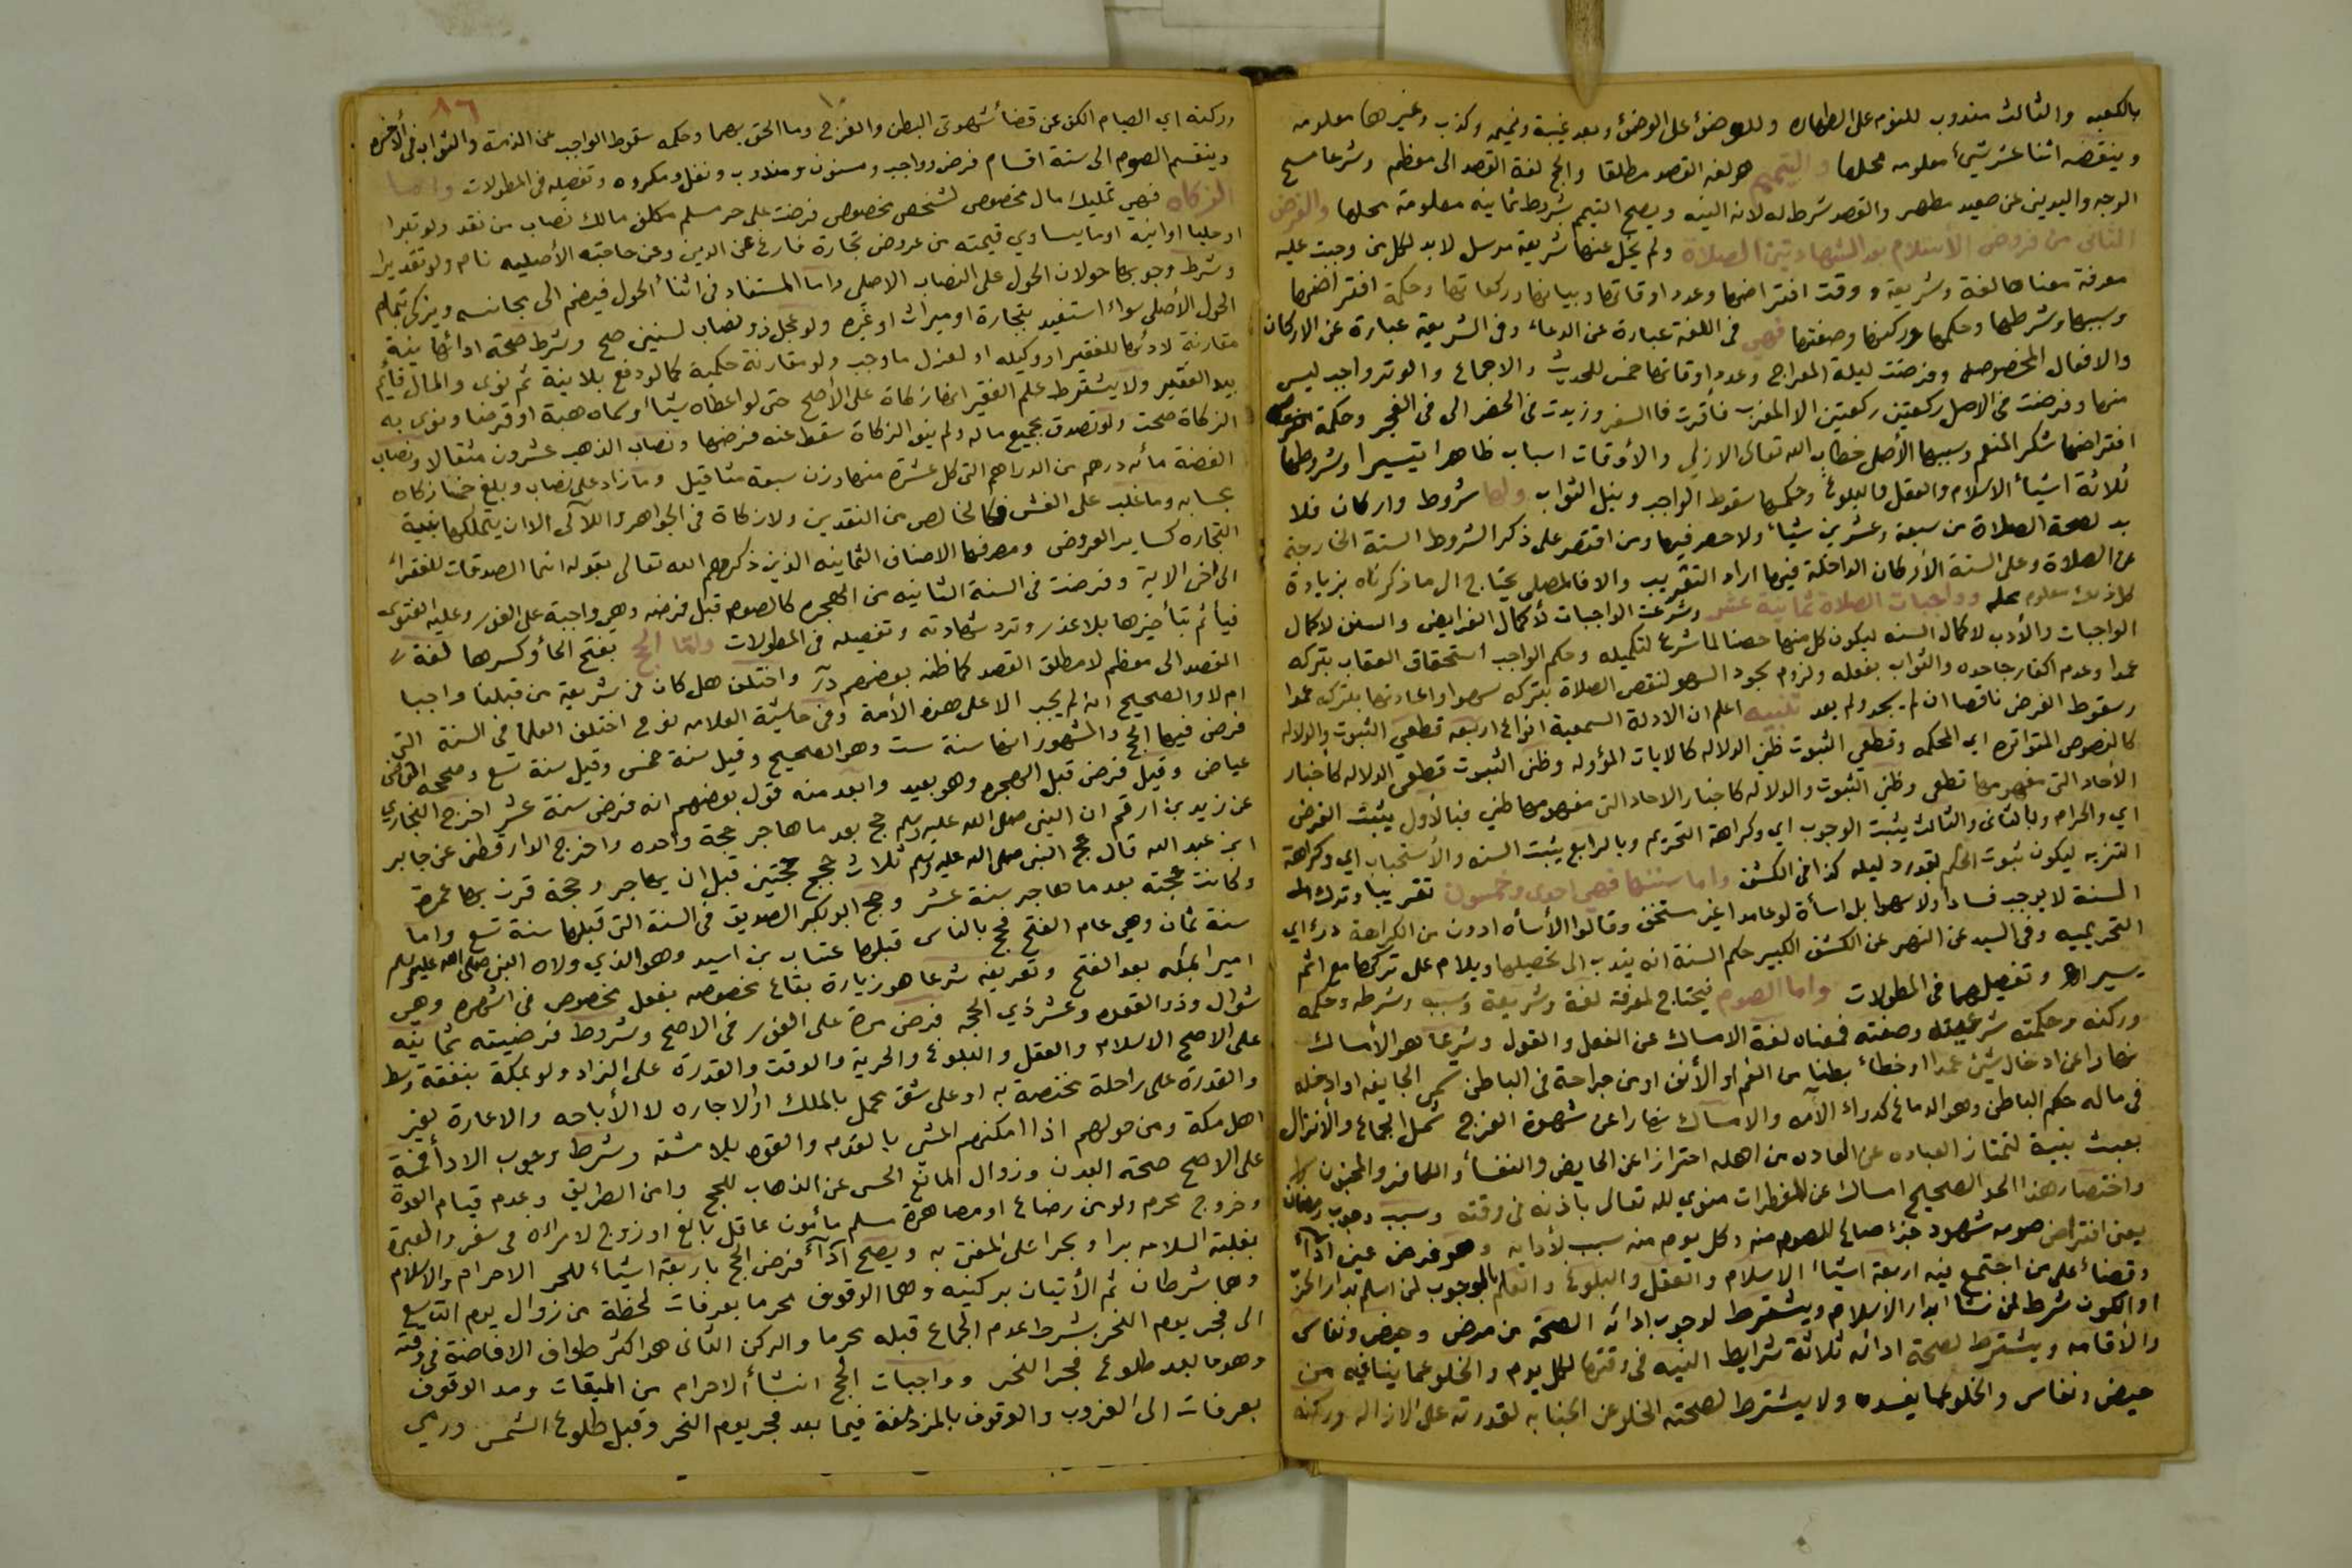 بالكعبه والثالث مندوب للنوم على الطهاره وللوضوء على الوضوء وبعد غيبة ونميمه وكذب وغيرها معلومه
وينقضه اثنا عشر شيء معلومه محلها والتيمم هو لغه القصد مطلقا والحج لغة القصد الى معظم وشرعا مسح
الوجه واليدين عن صعيد مطهر والقصد شرط له لانه النيه ويصح التيمم بشروط ثمانيه معلومة محلها والفرض
الثاني من فروض الأسلام بعد الشهادتين الصلاة ولم يخل عنها شريعة مرسل لابد لكل من وجبت عليه
معرفة معناها لغة وشريعه ووقت افتراضها وعدد اوقاتها وبيانها وركعاتها وحكمة افتراضها
وسببها وشرطها وحكمها وركنها وصفتها فهي في اللغة عبارة عن الدعاء وفي الشريعة عبارة عن الاركان
والافعال المخصوصه وفرضت ليلة المعراج وعدد اوقاتها خمس للحديث والاجماع والوتر واجب ليس
منها وفرضت في الاصل ركعتين ركعتين الا المغرب فأقرت في السفر وزيدت في الحضر الى في الفجر وحكمة
افتراضها شكر المنعم وسببها الأصلي خطاب الله تعالى الازلي والأوقات اسباب ظاهرا تيسيرا وشروطها
ثلاثة اشياء الاسلام والعقل والبلوغ وحكمها سقوط الواجب ونيل الثواب ولها شروط واركان فلا
بد لصحة الصلاة من سبعة وعشرين شيئا ولا حصر فيها ومن اقتصر على ذكر الشروط الستة الخارجة
عن الصلاة وعلى الستة الأركان الداخلة فيها اراد التقريب والا فالمصلي يحتاج الى ما ذكرناه بزيادة
كل ذلك معلوم محله وواجبات الصلاة ثمانية عشر وشرعت الواجبات لأكمال الفرايض والسنن لاكمال
الواجبات والأدب لاكمال السنه ليكون كل منها حصنا لما شرع لتكميله وحكم الواجب استحقاق العقاب بتركه
عمدا وعدم اكفار جاحده والثواب بفعله ولزوم سجود السهو لنقص الصلاة بتركه سهوا واعادتها بتركه عمدا
وسقوط الفرض ناقصا ان لم يسجد ولم يعد تنبيه اعلم ان الادلة السمعية انواع اربعه قطعي الثبوت والدلاله
كالنصوص المتواتره اي المحكمه وقطعي الثبوت ظني الدلاله كالايات المؤوله وظني الثبوت قطعي الدلاله كاخبار
الأحاد التي مفهومها قطعي وظني الثبوت والدلاله كاخبار الاحاد التي مفهومها ظني فبالأول يثبت الفرض
اي والحرام وبالثاني والثالث يثبت الوجوب اي وكراهة التحريم وبالرابع يثبت السنه والأستحباب اي وكراهة
التنزيه ليكون ثبوت الحكم بقدر دليله كذا في الكشف واما سننها فهي احدى وخمسون تقريبا وترك
السنة لا يوجب فسادا ولا سهوا بل اسأة لو عامدا غير مستخف وقالوا الأسأه ادون من الكراهة
التحريميه وفي السيد عن النهر عن الكشف الكبير حكم السنة انه يندب الى تحصيلها ويلام على تركها مع اثم
يسير وتفصيلهما في المطولات واما الصوم فيحتاج لمعرفة لغة وشريعة وسببه وشرطه وحكمه
وركنه وحكمته شرعيته وصفته فمعناه لغة الامساك عن الفعل والقول وشرعا هو الأمساك
نهارا عن ادخال شيئ عمدا او خطاء بطنا من الفم او الأنف او من جراحة في الباطن تسمى الجايفه او ادخله
في ماله حكم الباطن وهو الدماغ كدواء الآمه والامساك نهارا عن شهوة الفرج شمل الجماع والأنزال
بعبث بنية لتمتاز العباده عن العاده من اهله احترازا عن الحايض والنفسأ والكافر والمجنون
واختصار هذا الحد الصحيح امساك عن المفطرات منوي لله تعالى باذنه في وقته وسبب وجوب رمضان
يعني افتراض صومه شهود جزء صالح للصوم منه وكل يوم منه سبب لأدايه وهو فرض عين اداء
وقضاء على من اجتمع فيه اربعة اشياء الاسلام والعقل والبلوغ والعلم بالوجوب لمن اسلم بدار الحرب
او الكون شرط لمن نشأ بدار الاسلام ويشترط لوجوب ادائه الصحة من مرض وحيض ونفاس
والأقامه ويشترط لصحة ادائه ثلاثة شرايط النيه في وقتها لكل يوم والخلو عما ينافيه من
حيض ونفاس والخلو عما يفسده ولا يشترط لصحته الخلو عن الجنابه لقدرته على الازاله وركنه
٨٦
وركنه اي الصيام الكف عن قضأ شهوتي البطن والفرج وما الحق بهما وحكمه سقوط الواجب عن الذمة والثواب في الأخره
وينقسم الصوم الى ستة اقسام فرض وواجب ومسنون ومندوب ونفل ومكروه وتفصيله في المطولات واما
الزكاه فهي تمليك مال مخصوص لشخص مخصوص فرضت على حر مسلم مكلف مالك نصاب من نقد ولو تبرا
او حليا او انيه او ما يساوي قيمته من عروض تجارة فارغ عن الدين وعن حاجته الأصليه نام ولو تقديرا
وشرط وجوبها حولان الحول على النصاب الاصلي واما المستفاد في اثنأ الحول فيضم الى مجانسه ويزكى بتمام
الحول الأصلي سواء استفيد بتجارة او ميراث او غيره ولو عجل ذو نصاب لسنين صح وشرط صحة ادائها نية
مقارنة لادئها للفقير او وكيله او لعزل ما وجب ولو مقارنة حكمية كما لو دفع بلا نية ثم نوى والمال قايم
بيد الفقير ولا يشترط علم الفقير انها زكاة على الأصح حتى لو اعطاه شيئا وسماه هبة او قرضا ونوى به
الزكاة صحت ولو تصدق بجميع ماله ولم ينو الزكاة سقط عنه فرضها ونصاب الذهب عشرون مثقالا ونصاب
الفضة مأته درهم من الدراهم التي كل عشرة منها وزن سبعة مثاقيل وما زاد على نصاب وبلغ خمسا زكاه
بحسابه وما غلب على الغش فكالخالص من النقدين ولا زكاة في الجواهر واللآلى الا ان يتملكها بنية
التجاره كساير العروض ومصرفها الاصناف الثمانيه الذين ذكرهم الله تعالى بقوله انما الصدقات للفقراء
الى اخر الاية وفرضت في السنة الثانيه من الهجره كالصوم قبل فرضه وهي واجبة على الفور وعليه الفتوى
فيأثم بتأخيرها بلا عذر وترد شهادته وتفصيله في المطولات وامّا الحج بفتح الحأ وكسرها لغة
القصد الى معظم لا مطلق القصد كما ظنه بعضهم واختلف هل كان في شريعة من قبلنا واجبا
ام لا والصحيح انه لم يجب الا على هذه الأمة وفي حاشية العلامه نوح اختلف العلما في السنة التي
فرض فيها الحج والمشهور انها سنة ست وهو الصحيح وقيل سنة خمس وقيل سنة تسع وصححه القاضي
عياض وقيل فرض قبل الهجره وهو بعيد وابعد منه قول بعضهم انه فرض سنة عشر اخرج البخاري
عن زيد بن ارقم ان النبي صلى الله عليه وسلم حج بعد ما هاجر حجة واحده واخرج الدارقطني عن جابر
ابن عبد الله قال حج النبي صلى الله عليه وسلم ثلاث حجج حجتين قبل ان يهاجر وحجة قرن بها عمرة
وكانت حجته بعد ما هاجر سنة عشر وحج ابو بكر الصديق في السنة التي قبلها سنة تسع واما
سنة ثمان وهي عام الفتح فحج بالناس قبلها عتاب بن اسيد وهو الذي ولاه النبي صلى الله عليه وسلم
اميرا بمكه بعد الفتح وتعريفه شرعا هو زيارة بقاع مخصوصه بفعل مخصوص في اشهره وهي
شوال وذو القعده وعشر ذي الحجه فرض مرة على الفور في الاصح وشروط فرضيته ثمانيه
على الاصح الاسلام والعقل والبلوغ والحرية والوقت والقدرة على الزاد ولو بمكة بنفقة وسط
والقدرة على راحلة مختصة به او على شق محمل بالملك او الاجاره لا الأباحه والاعارة لغير
اهل مكة ومن حولهم اذا امكنهم المشي بالقدم والقوه بلا مشقه وشرط وجوب الادأ خمسة
على الاصح صحة البدن وزوال المانع الحسي عن الذهاب للحج وامن الطريق وعدم قيام العدة
وخروج محرم ولو من رضاع او مصاهرة مسلم مأمون عاقل بالغ او زوج لامرأه في سفر والعبرة
بغلبة السلامه برا وبحرا على المفتى به ويصح ادآء فرض الحج باربعة اشياء للحر الاحرام والاسلام
وهما شرطان ثم الأتيان بركنيه وهما الوقوف محرما بعرفات لحظة من زوال يوم التاسع
الى فجر يوم النحر بشرط عدم الجماع قبله محرما والركن الثاني هو اكثر طواف الافاضة في وقته
وهو ما بعد طلوع فجر النحر وواجبات الحج انشأ الاحرام من الميقات ومد الوقوف
بعرفات الى الغروب والوقوف بالمزدلفة فيما بعد فجر يوم النحر وقبل طلوع الشمس ورمي